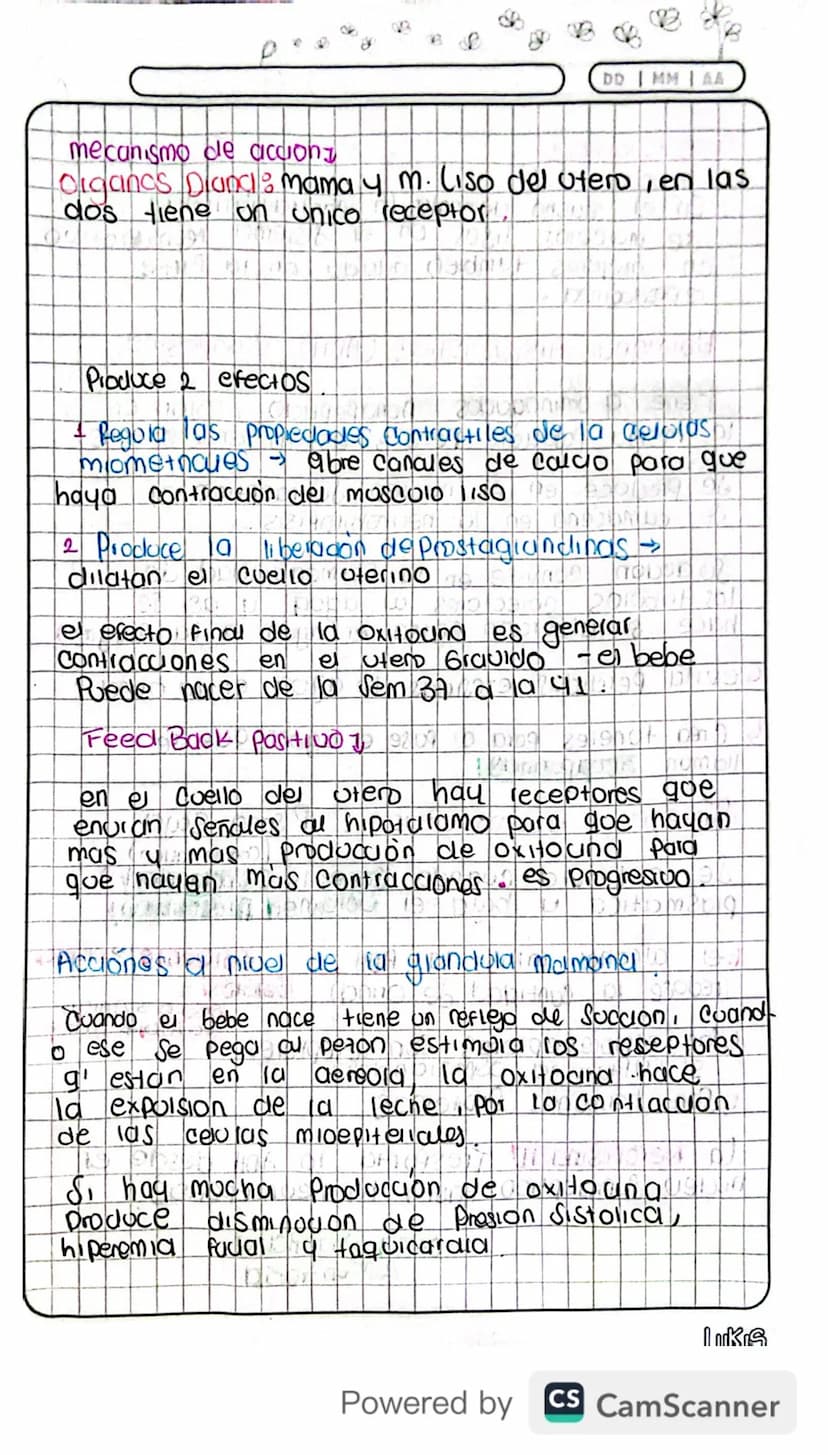 DD | MM | AA
mecanismo de accion↴
Organos Diana: mama y m. liso del utero, en las
dos tiene un unico receptor.
Produce 2 efectos.
1 Regula las propiedades contractiles de la celulas
miometriales → abre canales de calcio para que
haya contracción del musculo liso
2 Produce la liberación de Prostaglandinas →
dilatan el cuello uterino
el efecto final de la oxitocina es generar
contracciones en el utero Gravido - el bebe
Puede nacer de la Sem 37 a la 41.
Feed Back Positivo↴
en el cuello del utero hay receptores que
envian señales al hipotalamo para que hayan
mas y mas producción de oxitocina para
que hayan más contracciones. es progresivo.
Acciones a nivel de la glandula mamaria.
Cuando el bebe nace tiene un reflejo de succion, cuand-
o ese se pega al pezon estimula los reseptores
q' estan en la aereola, la oxitocina hace
la expulsion de la leche, por la contracción
de las celulas mioepiteliales.
Si hay mucha Producción de oxitocina
Produce disminucion de Presion Sistolica,
hiperemia facial y taquicardia.
Powered by CS CamScanner